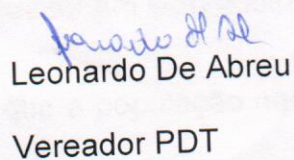 Leonardo De Abreu
Vereador PDT